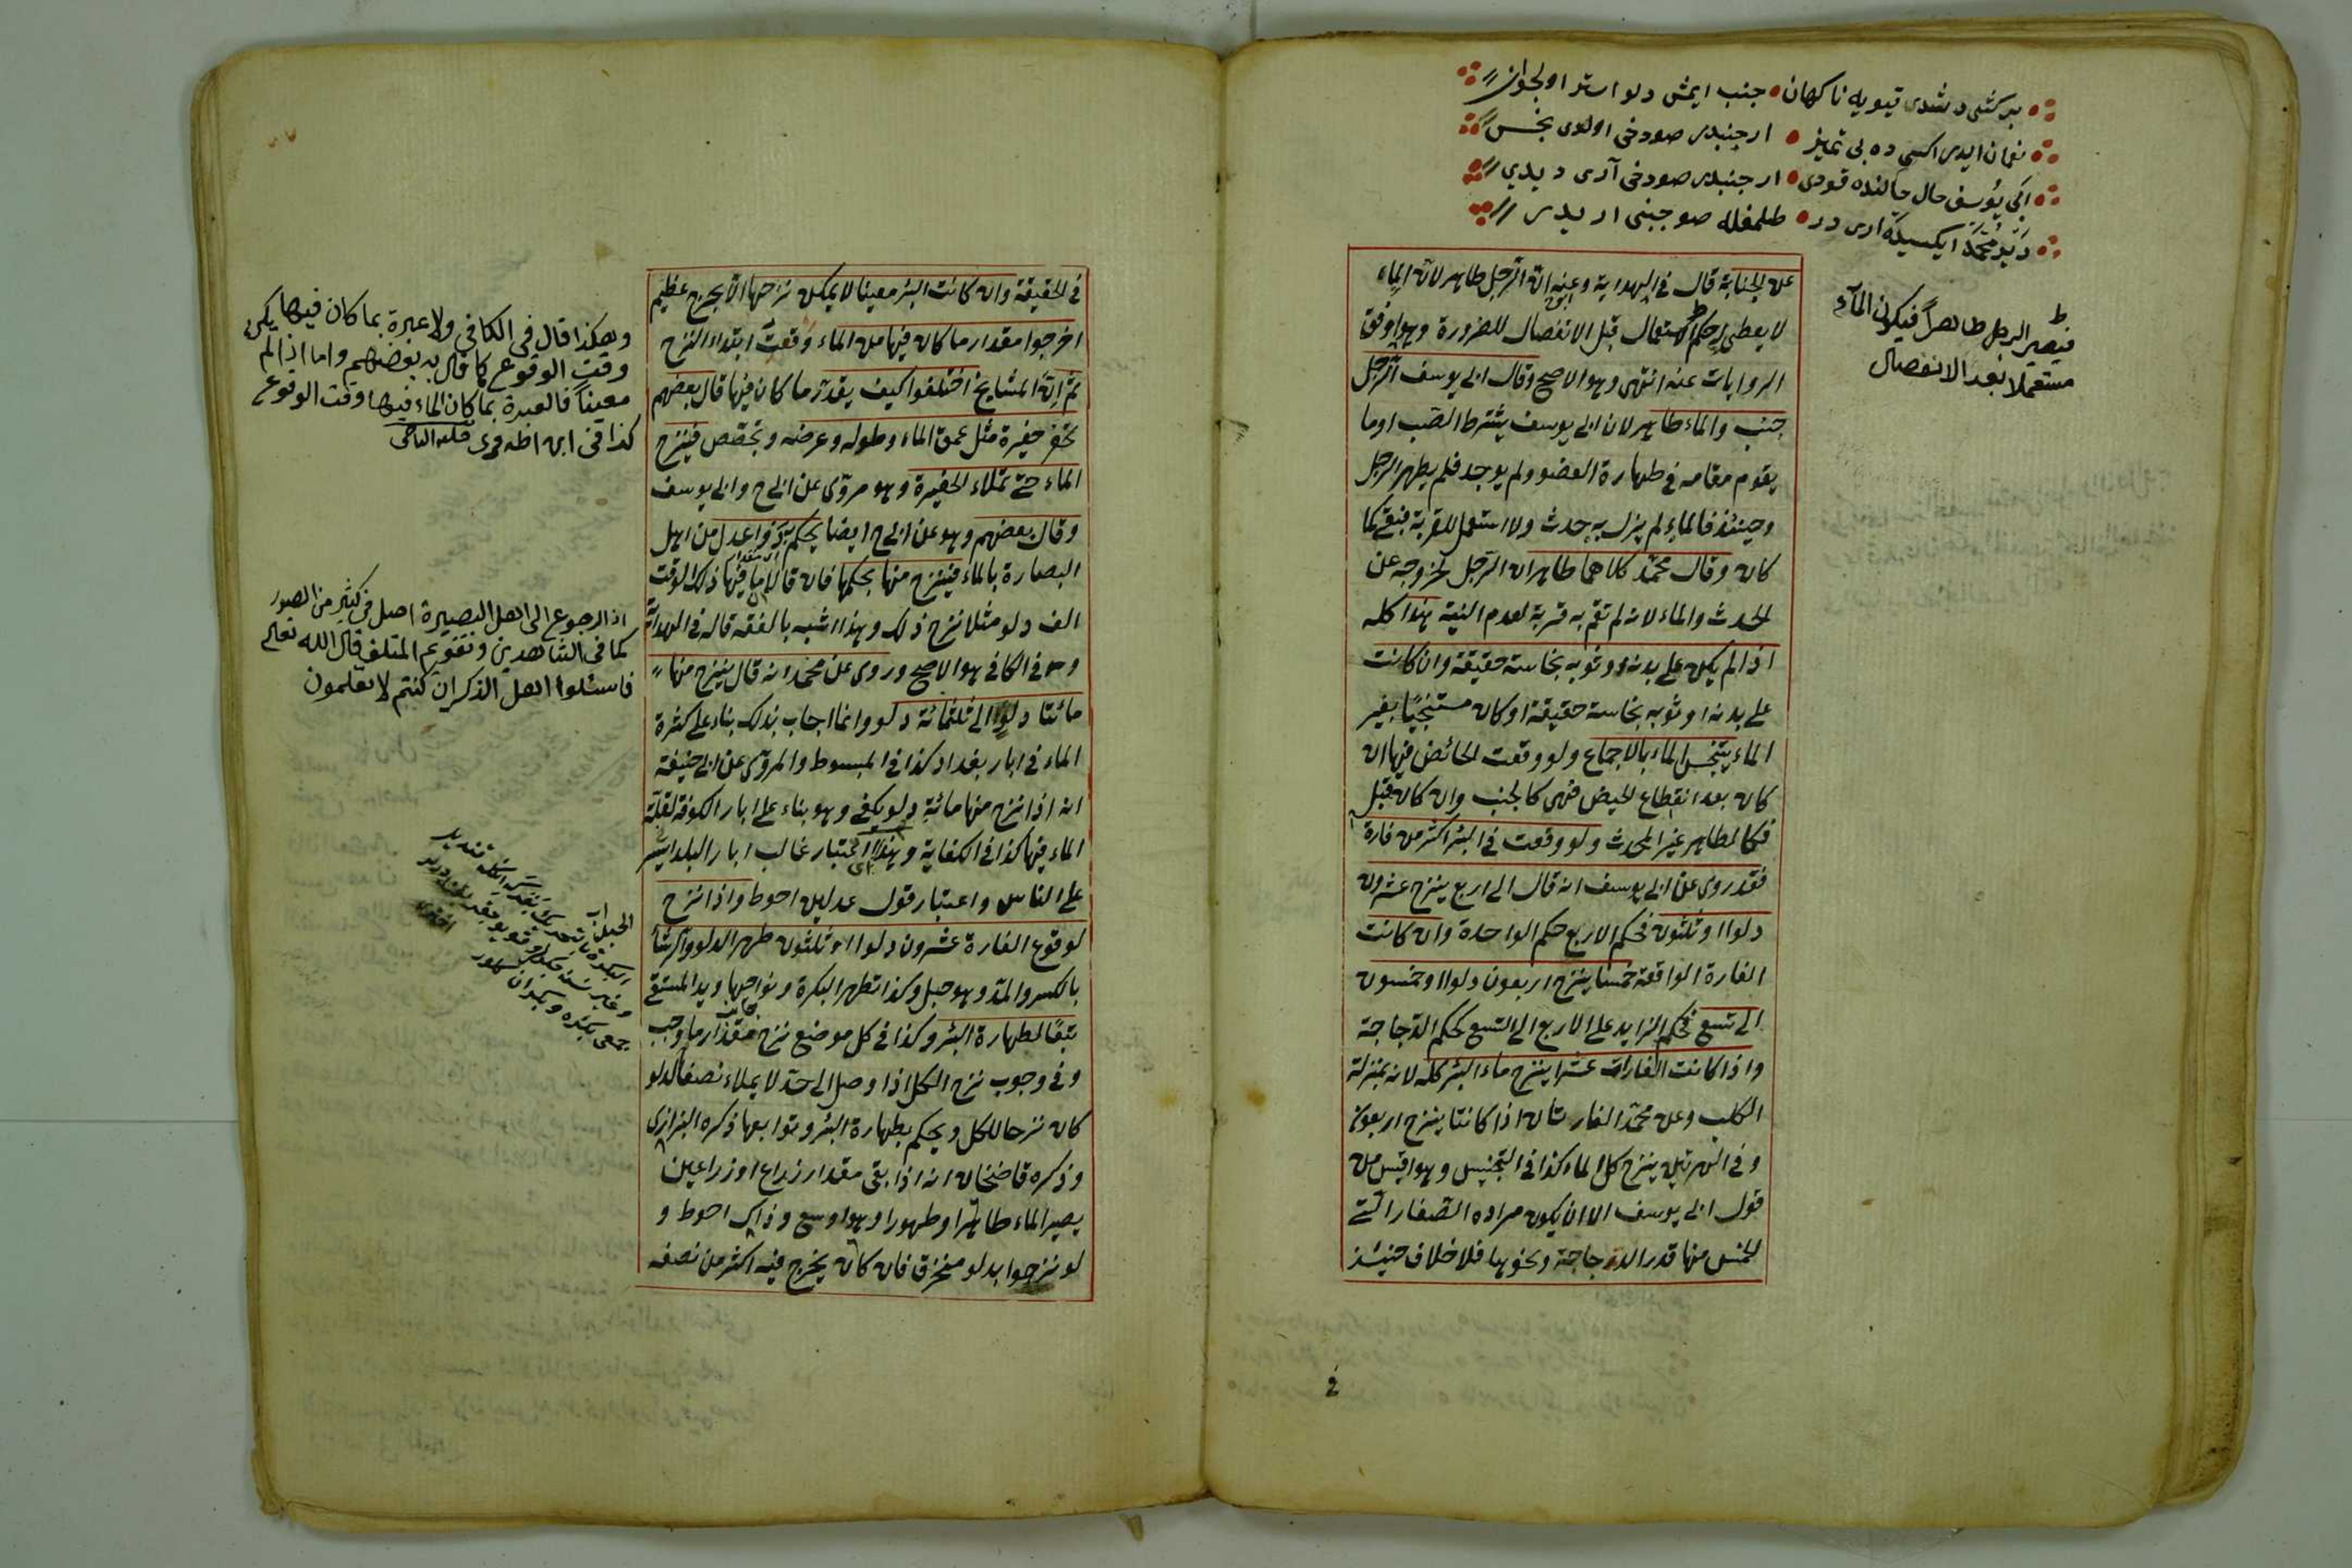 بر كشى دشدى قيويه ناكهان جنب ايمش دلو استر اولجوان
نعمان ايدر اكسى ده بى تميز ار جنبدر صودخى اولدى نجس
ابى يوسف حال حالنده قودى ار جنبدر صودخى آرى ديدي
ديدى محمد ايكسيده آرى در طلمغله صو جنبى ار يدر
فيصير الرجل طاهراً فيكون الماء
مستعملا بعد الانفصال
عن الجنابة قال في الهداية وعنه ان الرجل طاهر لان الماء
لا يعطى له حكم الاستعمال قبل الانفصال للضرورة وهو اوفق
الروايات عنه انتهى وهو الاصح وقال ابي يوسف الرجل
جنب والماء طاهر لان ابي يوسف يشترط الصب او ما
يقوم مقامه في طهارة العضو ولم يوجد فلم يطهر الرجل
وحينئذ فالماء لم يزل به حدث ولا استعمل للقربة فبقي كما
كان وقال محمد كلاهما طاهران الرجل لخروجه عن
الحدث والماء لانه لم تقم به قربة لعدم النية هذا كله
اذا لم يكن على بدنه او ثوبه نجاسة حقيقة وان كانت
على بدنه او ثوبه نجاسة حقيقة او كان مستنجيا بغير
الماء يتنجس الماء بالاجماع ولو وقعت الحائض فيها ان
كان بعد انقطاع الحيض فهي كالجنب وان كان قبل
فكالطاهر غير المحدث ولو وقعت في البئر اكثر من فارة
فقد روى عن ابي يوسف انه قال الى اربع ينزح عشرون
دلوا او ثلثون فحكم الاربع حكم الواحدة وان كانت
الفارة الواقعة خمسا ينزح اربعون دلوا او خمسون
الى تسع فحكم الزايد على الاربع الى التسع كحكم الدجاجة
واذا كانت الفارات عشرا ينزح ماء البئر كله لانه بمنزلة
الكلب وعن محمد الفارتان اذا كانتا ينزح اربعون
وفي الهرتين ينزح كل الماء كذا في التجنيس وهو اقيس من
قول ابي يوسف الا ان يكون مراده الصغار التي
الخمس منها قدر الدجاجة ونحوها فلا خلاف حينئذ
في
في الحقيقة وان كانت البئر معينا لا يمكن نزاحها الا بحرج عظيم
اخرجوا مقدار ما كان فيها من الماء وقت ابتداء النزح
ثم ان المشايخ اختلفوا كيف يقدر ما كان فيها قال بعضهم
تحفر حفيرة مثل عمق الماء وطوله وعرضه وتجصص فينزح
الماء حتى تملاء الحفيرة وهو مروى عن ابى ح وابى يوسف
وقال بعضهم وهو عن ابى ح ايضا يحكم ذوا عدل من اهل
البصارة بالماء فينزح منها بحكمها فان قالا ما فيها ذلك الوقت
الف دلو مثلا نزح ذلك وهذا اشبه بالفقه قاله في الهداية
وفي الكافي هو الاصح وروى عن محمد انه قال ينزح منها
مائتا دلو الى ثلثمائة دلو وانما اجاب بذلك بناء على كثرة
الماء في ابار بغداد كذا في المبسوط والمروى عن ابى حنيفة
انه اذا نزح منها مائة دلو يكفي وهو بناء على ابار الكوفة لقلة
الماء فيها كذا في الكفاية وهذا اعتبار غالب ابار البلد ايسر
على الناس واعتبار قول عدلين احوط واذا نزح
لوقوع الفارة عشرون دلوا او ثلثون طهر الدلو والرشأ
بالكسر والمد وهو حبل وكذا تطهر البكرة ونواحيها ويد المستقي
تبعًا لطهارة البئر وكذا في كل موضع نزح مقدار ما وجب
وفي وجوب نزح الكل اذا وصل الى حد لا يملاء نصف الدلو
كان نزحا للكل ويحكم بطهارة البئر وتوابعها ذكره البزازى
وذكره قاضيخان انه اذا بقى مقدار زراع او زراعين
يصير الماء طاهرا وطهورا وهو اوسع وذاك احوط و
لو نزحوا بدلو منخرق فان كان يخرج فيه اكثر من نصفه
وهكذا قال في الكافي ولا عبرة بما كان فيها
وقت الوقوع كما قال به بعضهم واما اذا لم يكن
معيناً فالعبرة بما كان الماء فيها وقت الوقوع
كذا في ابن
اذ الرجوع الى اهل البصيرة اصل في كثير من الصور
كما في الشاهدين وتقويم المتلف قال الله تعالى
فاسئلوا اهل الذكر ان كنتم لا تعلمون